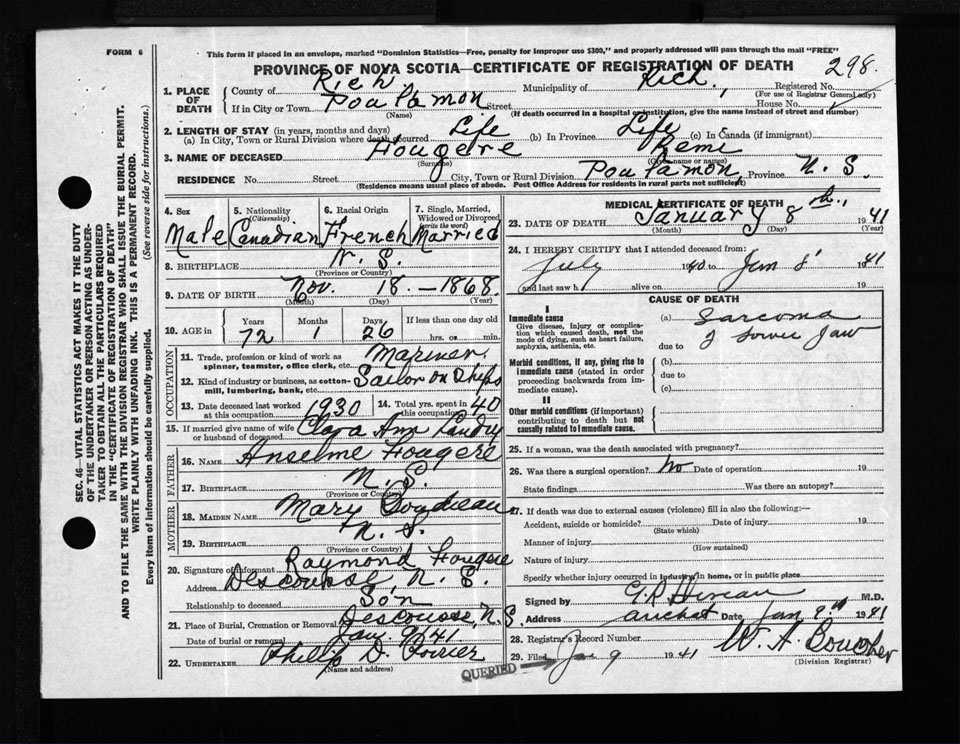 FORM 6
This form if placed in an envelope, marked "Dominion Statistics—Free, penalty for improper use $300," and properly addressed will pass through the mail "FREE"
PROVINCE OF NOVA SCOTIA—CERTIFICATE OF REGISTRATION OF DEATH
298.
1. PLACE OF DEATH County of Rich Municipality of Rich., Registered No.
(For use of Registrar General only)
If in City or Town Poulamon Street House No.
(Name) (If death occurred in a hospital or institution, give the name instead of street and number)
2. LENGTH OF STAY (in years, months and days)
(a) In City, Town or Rural Division where death occurred Life (b) In Province Life (c) In Canada (if immigrant)
3. NAME OF DECEASED Fougere Remi
(Surname) (Given name or names)
RESIDENCE No. Street City, Town or Rural Division Poulamon, Province N. S.
(Residence means usual place of abode. Post Office Address for residents in rural parts not sufficient)
4. Sex Male
5. Nationality (Citizenship) Canadian
6. Racial Origin French
7. Single, Married, Widowed or Divorced (write the word) Married
8. BIRTHPLACE N. S.
(Province or Country)
9. DATE OF BIRTH Nov. 18. — 1868.
(Month) (Day) (Year)
10. AGE in Years Months Days If less than one day old
72 1 26 hrs. or min.
OCCUPATION
11. Trade, profession or kind of work as spinner, teamster, office clerk, etc. Mariner.
12. Kind of industry or business, as cotton-mill, lumbering, bank, etc. Sailor on Ships
13. Date deceased last worked at this occupation 1930
14. Total yrs. spent in this occupation 40
15. If married give name of wife or husband of deceased Clara Ann Landry
FATHER
16. NAME Anselme Fougere
17. BIRTHPLACE N. S.
(Province or Country)
MOTHER
18. MAIDEN NAME Mary Boudreau
19. BIRTHPLACE N. S.
(Province or Country)
20. Signature of informant Raymond Fougere
Address Descousse, N. S.
Relationship to deceased Son
21. Place of Burial, Cremation or Removal Descousse, N. S.
Date of burial or removal Jan. 9 41
22. UNDERTAKER Philip D. Poirier
(Name and address)
MEDICAL CERTIFICATE OF DEATH
23. DATE OF DEATH January 8th, 1941
(Month) (Day) (Year)
24. I HEREBY CERTIFY that I attended deceased from:
July 1940 to Jan 8 1941
and last saw h alive on 19
CAUSE OF DEATH
I
Immediate cause
Give disease, injury or complication which caused death, not the mode of dying, such as heart failure, asphyxia, asthenia, etc.
(a) Sarcoma
due to of lower Jaw
Morbid conditions, if any, giving rise to immediate cause (stated in order proceeding backwards from immediate cause).
(b)
due to
(c)
II
Other morbid conditions (if important) contributing to death but not causally related to immediate cause.
25. If a woman, was the death associated with pregnancy?
26. Was there a surgical operation? No Date of operation 19
State findings Was there an autopsy?
27. If death was due to external causes (violence) fill in also the following:—
Accident, suicide or homicide? Date of injury 19
(State which)
Manner of injury
(How sustained)
Nature of injury
Specify whether injury occurred in industry, in home, or in public place
Signed by M.D.
Address Arichat Date Jan 9th 1941
28. Registrar's Record Number
29. Filed Jan 9 1941 W. A. Boucher
(Division Registrar)
QUERIED
SEC. 46—VITAL STATISTICS ACT MAKES IT THE DUTY
OF THE UNDERTAKER OR PERSON ACTING AS UNDER-
TAKER TO OBTAIN ALL THE PARTICULARS REQUIRED
IN THE "CERTIFICATE OF REGISTRATION OF DEATH"
AND TO FILE THE SAME WITH THE DIVISION REGISTRAR WHO SHALL ISSUE THE BURIAL PERMIT.
WRITE PLAINLY WITH UNFADING INK. THIS IS A PERMANENT RECORD.
Every item of information should be carefully supplied. (See reverse side for instructions.)